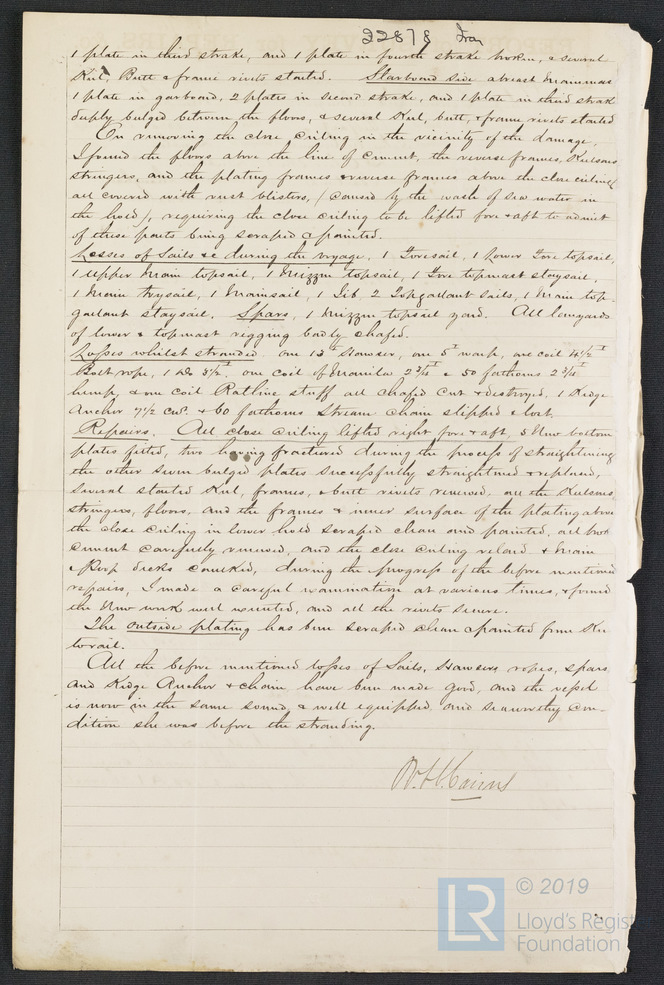 22878 Iron
1 plate in third strake, and 1 plate in fourth strake broken, & several
Keel, Butt & frame rivets started. Starboard side abreast Mainmast
1 plate in garboard, 2 plates in second strake, and 1 plate in third strake
deeply bulged between the floors, & several Keel, butt, & frame rivets started
On removing the close ceiling in the vicinity of the damage,
I found the floors above the line of cement, the reverse frames, Keelsons
stringers, and the plating frames & reverse frames above the close ceiling
all covered with rust blisters, (caused by the wash of sea water in
the hold), requiring the close ceiling to be lifted fore & aft to admit
of these parts being scraped & painted.
Losses of Sails &c during the voyage, 1 Foresail, 1 Lower Fore topsail,
1 Upper Main topsail, 1 Mizzen topsail, 1 Fore topmast staysail,
1 Main trysail, 1 Mainsail, 1 Jib, 2 Topgallant Sails, 1 Main top-
gallant staysail. Spars, 1 Mizzen topsail yard. All lanyards
of lower & topmast rigging badly chafed.
Losses whilst stranded. one 13 in Hawser, one 5 in warp, one coil 4 1/2 in
Bolt rope, 1 Do 3 1/2 in. one coil of Manila 2 3/4 in & 50 fathoms 2 3/4 in
hemp, & one coil Ratline stuff all chafed cut & destroyed, 1 Kedge
Anchor 7 1/2 cwt. & 60 fathoms Stream chain slipped & lost.
Repairs. All close ceiling lifted right fore & aft, 5 New bottom
plates fitted, two having fractured during the process of straightening
the other seven bulged plates successfully straightened & replaced,
Several started Keel, frames, & butt rivets renewed, all the Keelsons
stringers, floors, and the frames & inner surface of the plating above
the close ceiling in lower hold scraped clean and painted, all
cement carefully renewed, and the close ceiling relaid & Main
& Poop decks caulked, during the progress of the before mentioned
repairs, I made a careful examination at various times, & found
the New work well executed, and all the rivets secure.
The outside plating has been scraped clean & painted from Keel
to rail.
All the before mentioned losses of Sails, Hawsers, ropes, spars
and Kedge Anchor & chain have been made good, and the vessel
is now in the same sound, & well equipped, and seaworthy con-
dition she was before the stranding.
Cairns
LR © 2019
Lloyd's Regist
Foundation